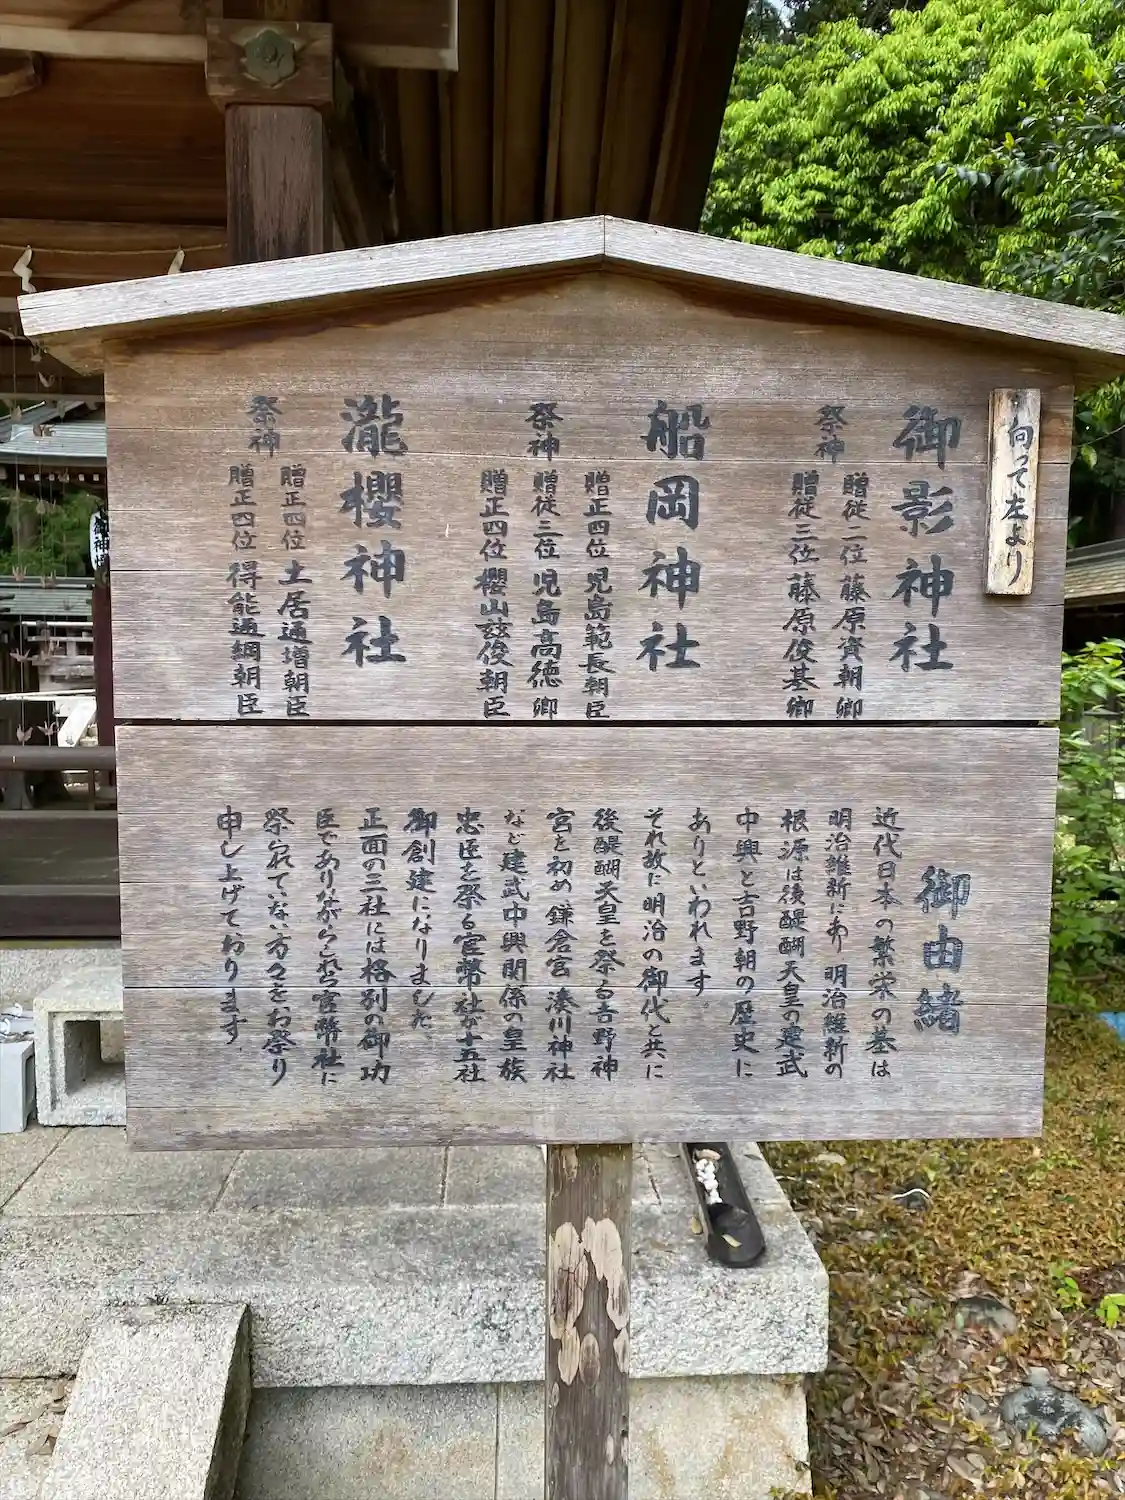 向って左より
御影神社
祭神
贈従二位 藤原資朝卿
贈従三位 藤原俊基卿
船岡神社
祭神
贈正四位 児島範長朝臣
贈従三位 児島高徳卿
贈正四位 櫻山玆俊朝臣
瀧櫻神社
祭神
贈正四位 土居通増朝臣
贈正四位 得能通綱朝臣
御由緒
近代日本の繁栄の基は
明治維新にあり 明治維新の
根源は後醍醐天皇の建武
中興と吉野朝の歴史に
ありといわれます。
それ故に明治の御代と共に
後醍醐天皇を祭る吉野神
宮を初め鎌倉宮 湊川神社
など建武中興関係の皇族
忠臣を祭る官幣社が十五社
御創建になりました。
正面の三社には格別の御功
臣でありながらこれら官幣社に
祭られていない方々をお祭り
申し上げております。